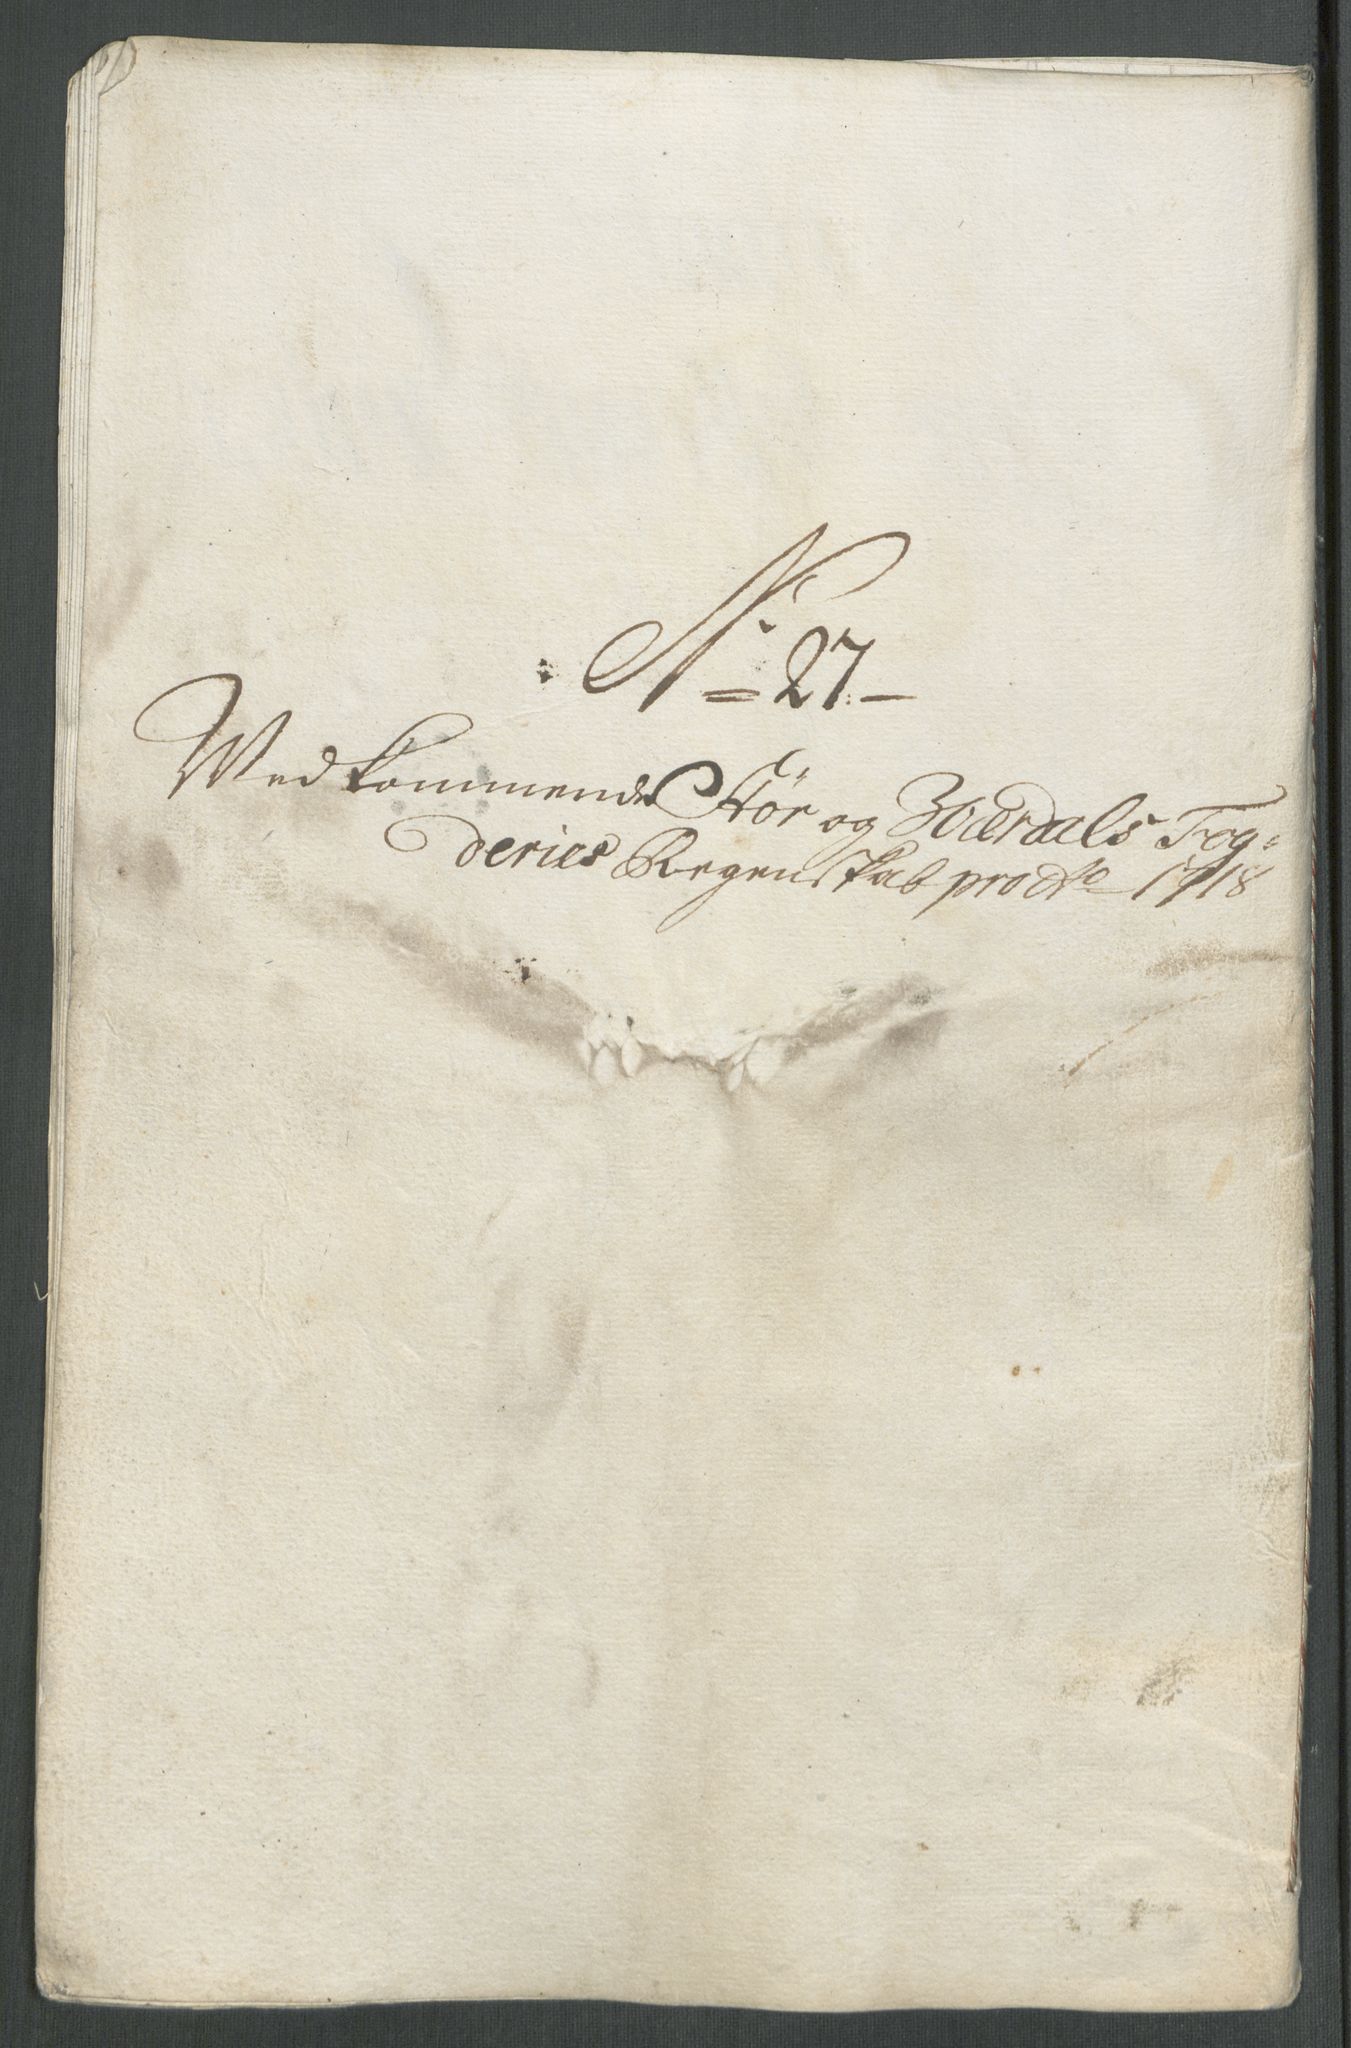 No 27
Wedkommende Stör og Værdals Fog-
deries Regenskab pro Ao 1718